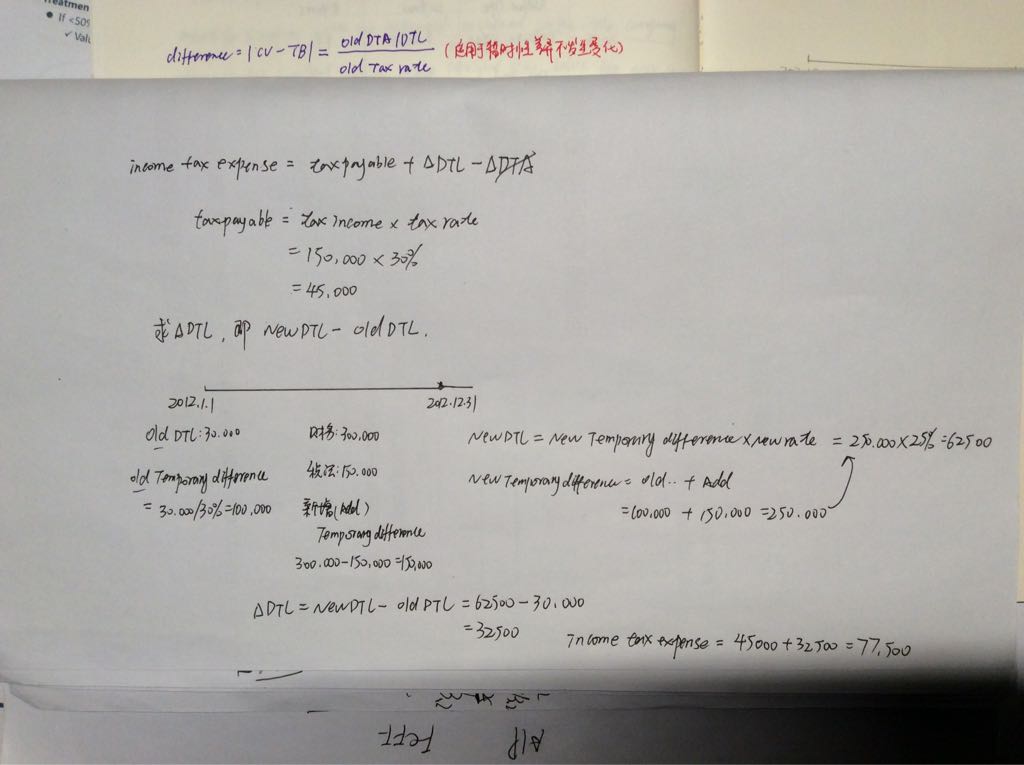 reatmen
If <50%
✓ Valu
difference = |CV - TB| = old DTA/DTL / old Tax rate (应用于暂时性差异不发生变化)
income tax expense = tax payable + ΔDTL - ΔDTA
tax payable = tax income × tax rate
= 150,000 × 30%
= 45,000
求ΔDTL, 即 New DTL - old DTL.
2012.1.1 2012.12.31
old DTL: 30.000
old Temporary difference
= 30.000/30% = 100,000
财务: 300,000
税法: 150.000
新增(Add)
Temporary difference
300.000 - 150,000 = 150,000
New DTL = New Temporary difference × new rate = 250.000 × 25% = 62500
New Temporary difference = old.. + Add
= 100.000 + 150.000 = 250.000
ΔDTL = New DTL - old DTL = 62500 - 30.000
= 32500
Income tax expense = 45000 + 32500 = 77,500
A/P